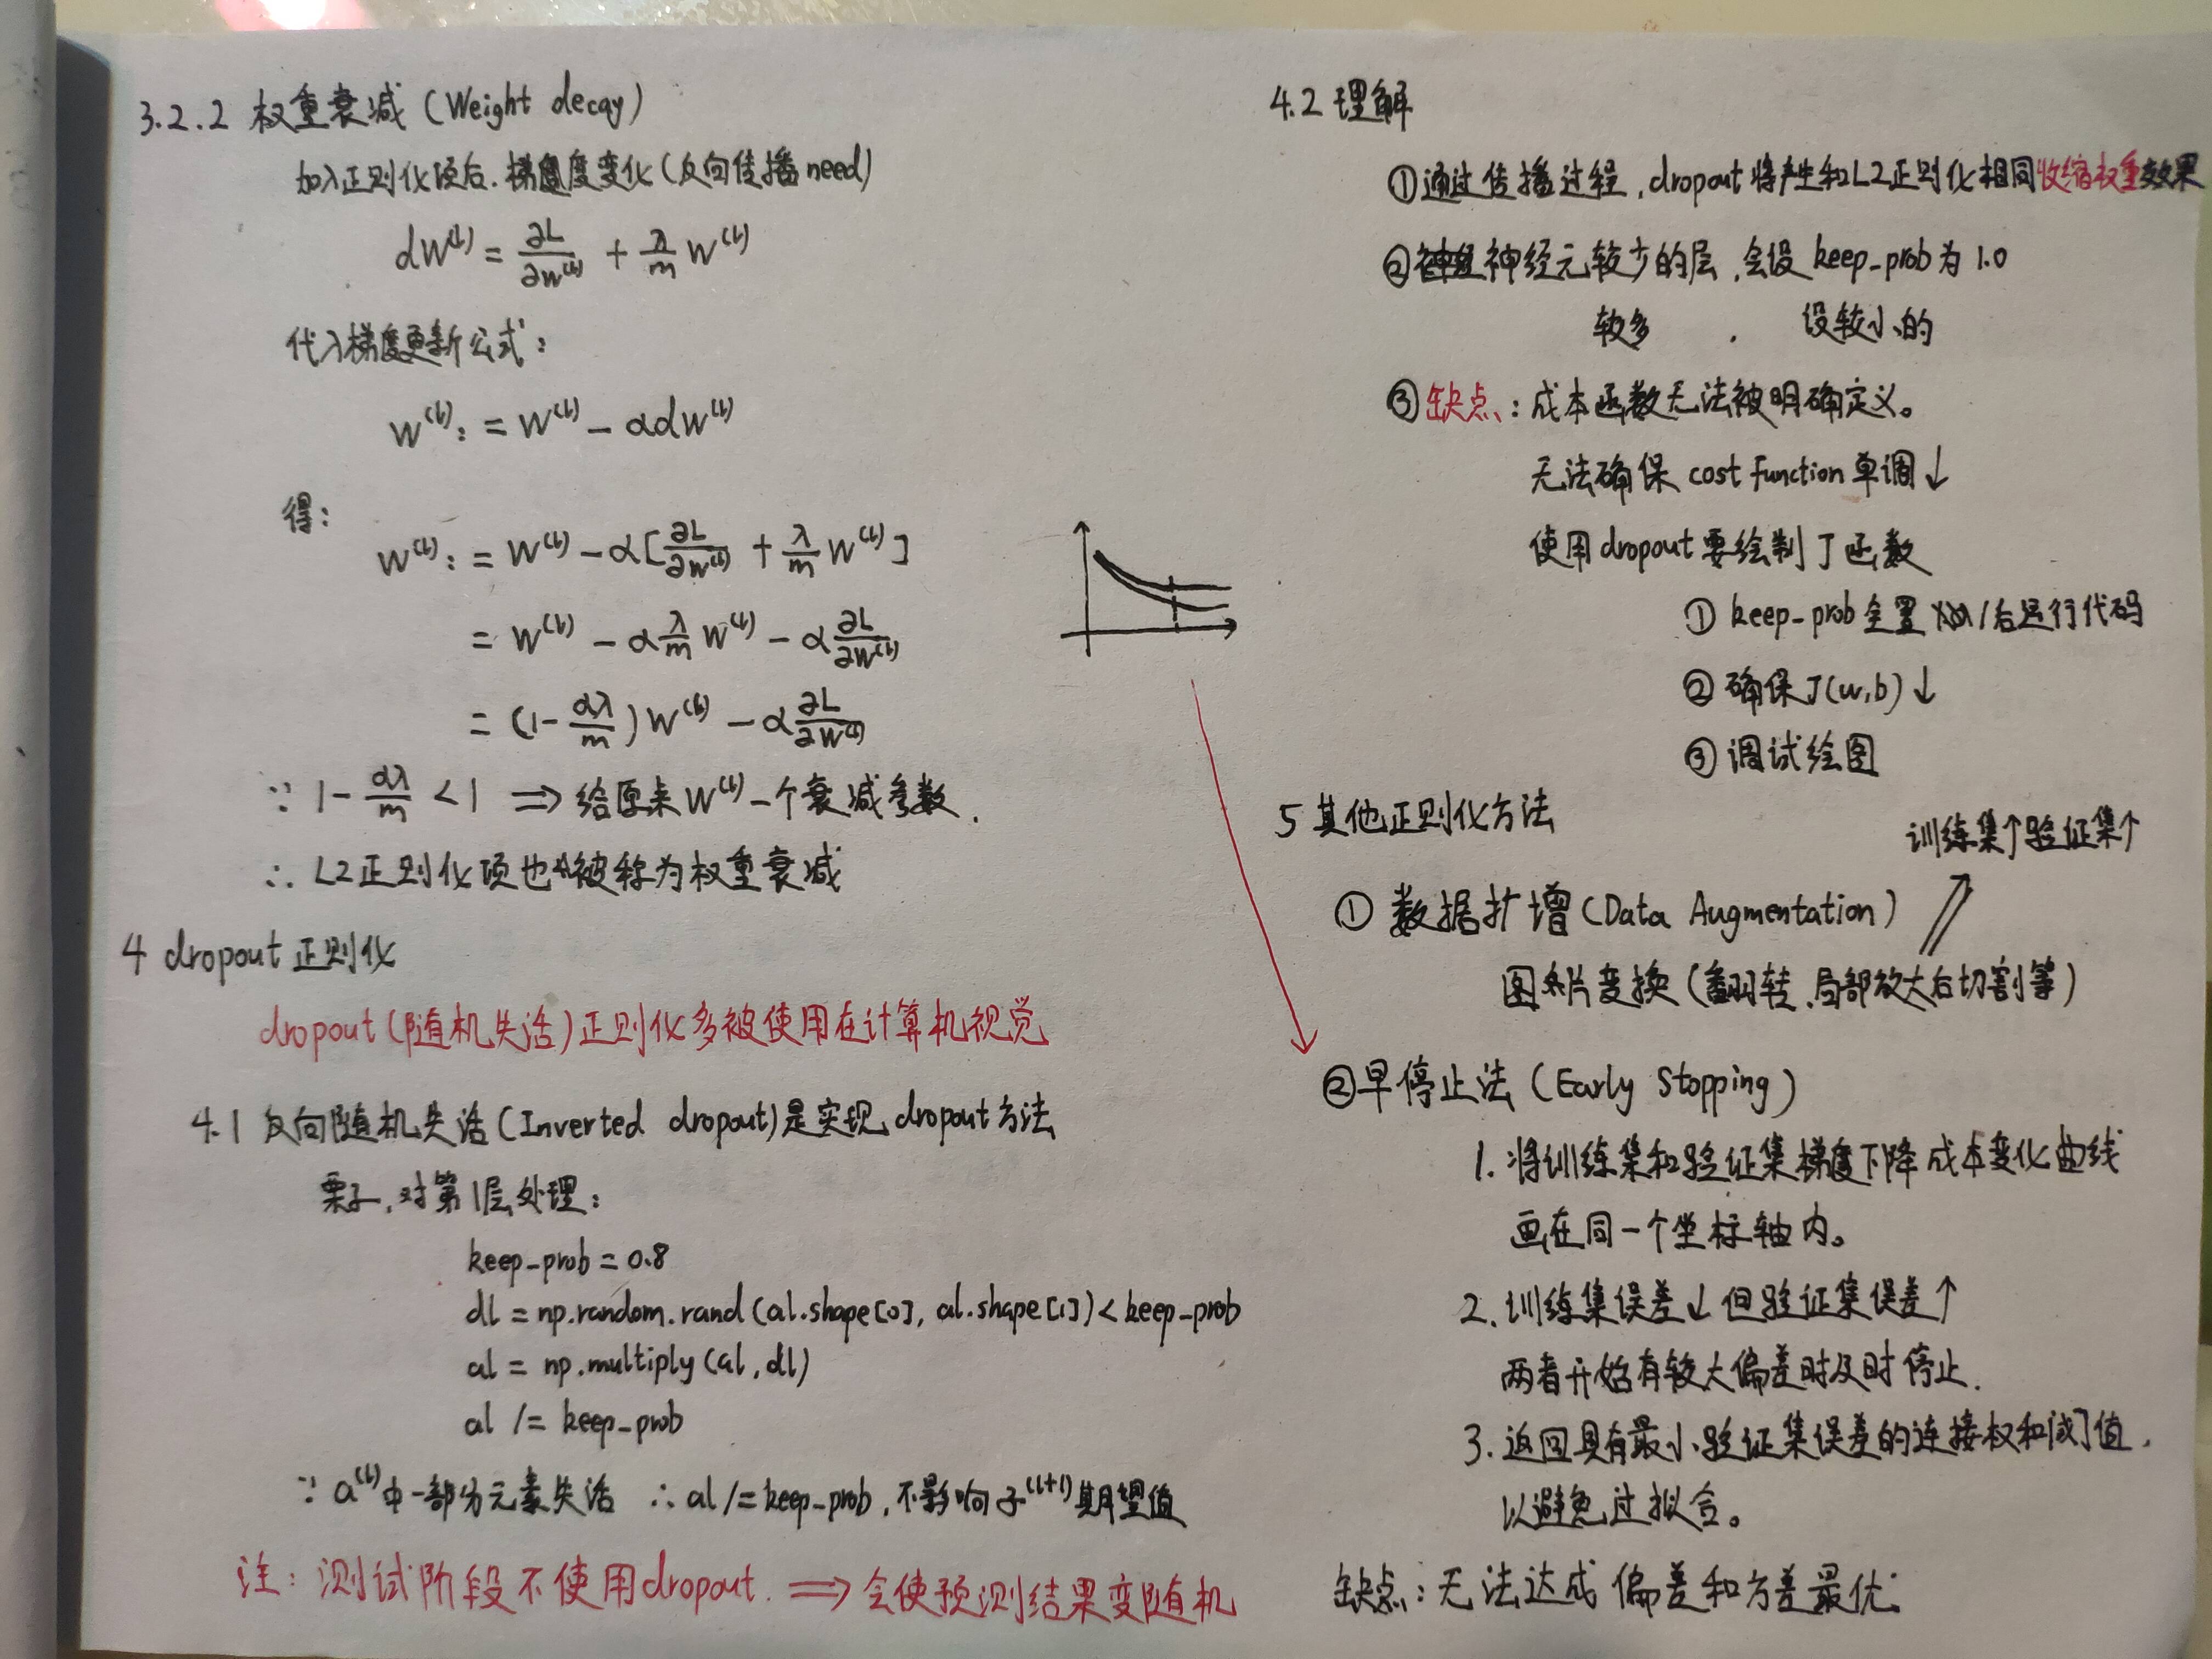 3.2.2 权重衰减 (Weight decay)
加入正则化项后.梯度变化(反向传播need)
dW^(l) = ∂L/∂w^(l) + λ/m W^(l)
代入梯度更新公式:
W^(l) := W^(l) - αdW^(l)
得:
W^(l) := W^(l) - α[∂L/∂w^(l) + λ/m W^(l)]
= W^(l) - α λ/m W^(l) - α ∂L/∂W^(l)
= (1 - αλ/m) W^(l) - α ∂L/∂W^(l)
∵ 1 - αλ/m < 1 ⇒ 给原来W^(l)一个衰减参数.
∴ L2正则化项也被称为权重衰减
4 dropout 正则化
dropout(随机失活)正则化多被使用在计算机视觉
4.1 反向随机失活(Inverted dropout)是实现dropout方法
栗子,对第l层处理:
keep_prob = 0.8
dl = np.random.rand(al.shape[0], al.shape[1]) < keep_prob
al = np.multiply(al, dl)
al /= keep_prob
∵ a^(l)中一部分元素失活 ∴ al /= keep_prob, 不影响z^(l+1)期望值
注: 测试阶段不使用dropout. ⇒ 会使预测结果变随机
4.2 理解
①通过传播过程,dropout将产生和L2正则化相同收缩权重效果
②神经元较少的层,会设keep_prob为1.0
较多 . 设较小的
③缺点:成本函数无法被明确定义。
无法确保 cost function 单调↓
使用dropout要绘制J函数
① keep_prob全置1后运行代码
② 确保J(w,b)↓
③ 调试绘图
5 其他正则化方法
训练集↑验证集↑
① 数据扩增(Data Augmentation)
图片变换(翻转.局部放大后切割等)
②早停止法(Early Stopping)
1.将训练集和验证集梯度下降成本变化曲线
画在同一个坐标轴内。
2.训练集误差↓但验证集误差↑
两者开始有较大偏差时及时停止.
3.返回具有最小验证集误差的连接权和阈值,
以避免过拟合。
缺点:无法达成偏差和方差最优